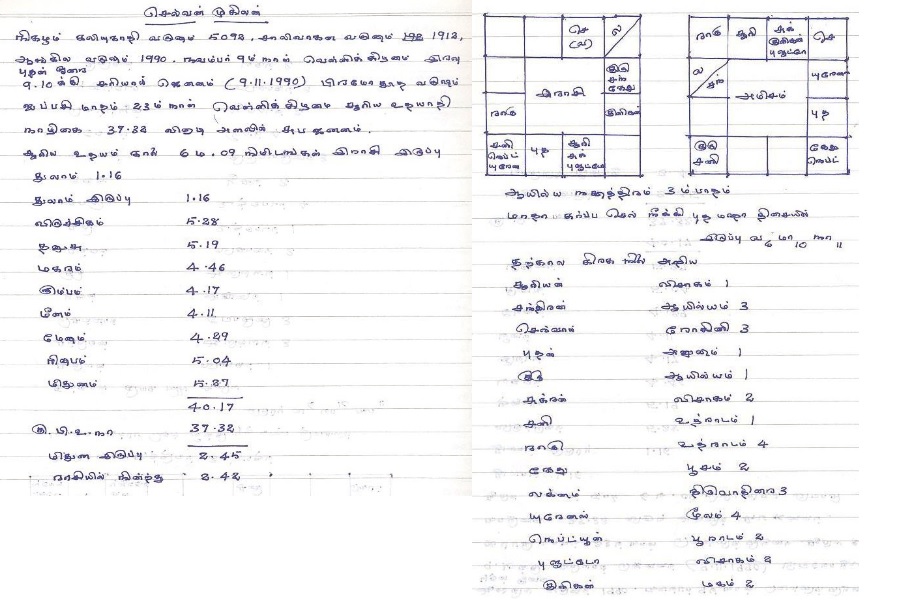 செல்வன் முகிலன்
நிகழும் கலியுகாதி வருஷம் 5092, சாலிவாகன வருஷம் 1912,
ஆங்கில வருஷம் 1990 நவம்பர் 9ம் நாள் வெள்ளிக்கிழமை இரவு
புதன் ஓரை
9.10க்கு சரியான ஜெனனம் (9.11.1990) பிரமோதூத வருஷம்
ஐப்பசி மாதம் 23ம் நாள் வெள்ளிக்கிழமை சூரிய உதயாதி
நாழிகை 37.32 விநாடி அளவில் சுப ஜனனம்.
சூரிய உதயம் காலை 6 ம. 09 நிமிடங்கள் இராசி இருப்பு
துலாம் 1.16
துலாம் இருப்பு 1.16
விருச்சிகம் 5.28
தனுசு 5.19
மகரம் 4.46
கும்பம் 4.17
மீனம் 4.11
மேஷம் 4.29
ரிஷபம் 5.04
மிதுனம் 5.27
40.17
37.32
மிதுன இருப்பு 2.45
ராசியில் நின்றது 2.42
செ
(வ)
ல
குரு
சந்
கேது
ராகு
இராசி
குளிகன்
சனி
நெப்ட்
யுரேன
புத
சூரி
சுக்
புளூட்டோ
ராகு
சூரி
சுக்
குளிகன்
புளூட்டோ
செ
ல
சந்
அம்சம்
யுரேன
புத
குரு
சனி
கேது
நெப்ட்
ஆயில்ய நக்ஷத்திரம் 3ம் பாதம்
மாதா கர்ப்ப செல் நீக்கி புத மஹா திசையின்
இருப்பு வ 6 மா 10 நா 11
தற்கால கிரக நிலை அறிய
சூரியன் விசாகம் 1
சந்திரன் ஆயில்யம் 3
செவ்வாய் ரோகிணி 3
புதன் அனுஷம் 1
குரு ஆயில்யம் 1
சுக்ரன் விசாகம் 2
சனி உத்ராடம் 1
ராகு உத்ராடம் 4
கேது பூசம் 2
லக்னம் திருவாதிரை 3
யுரேனஸ் மூலம் 4
நெப்ட்யூன் பூராடம் 2
புளூட்டோ விசாகம் 2
குளிகன் மகம் 2